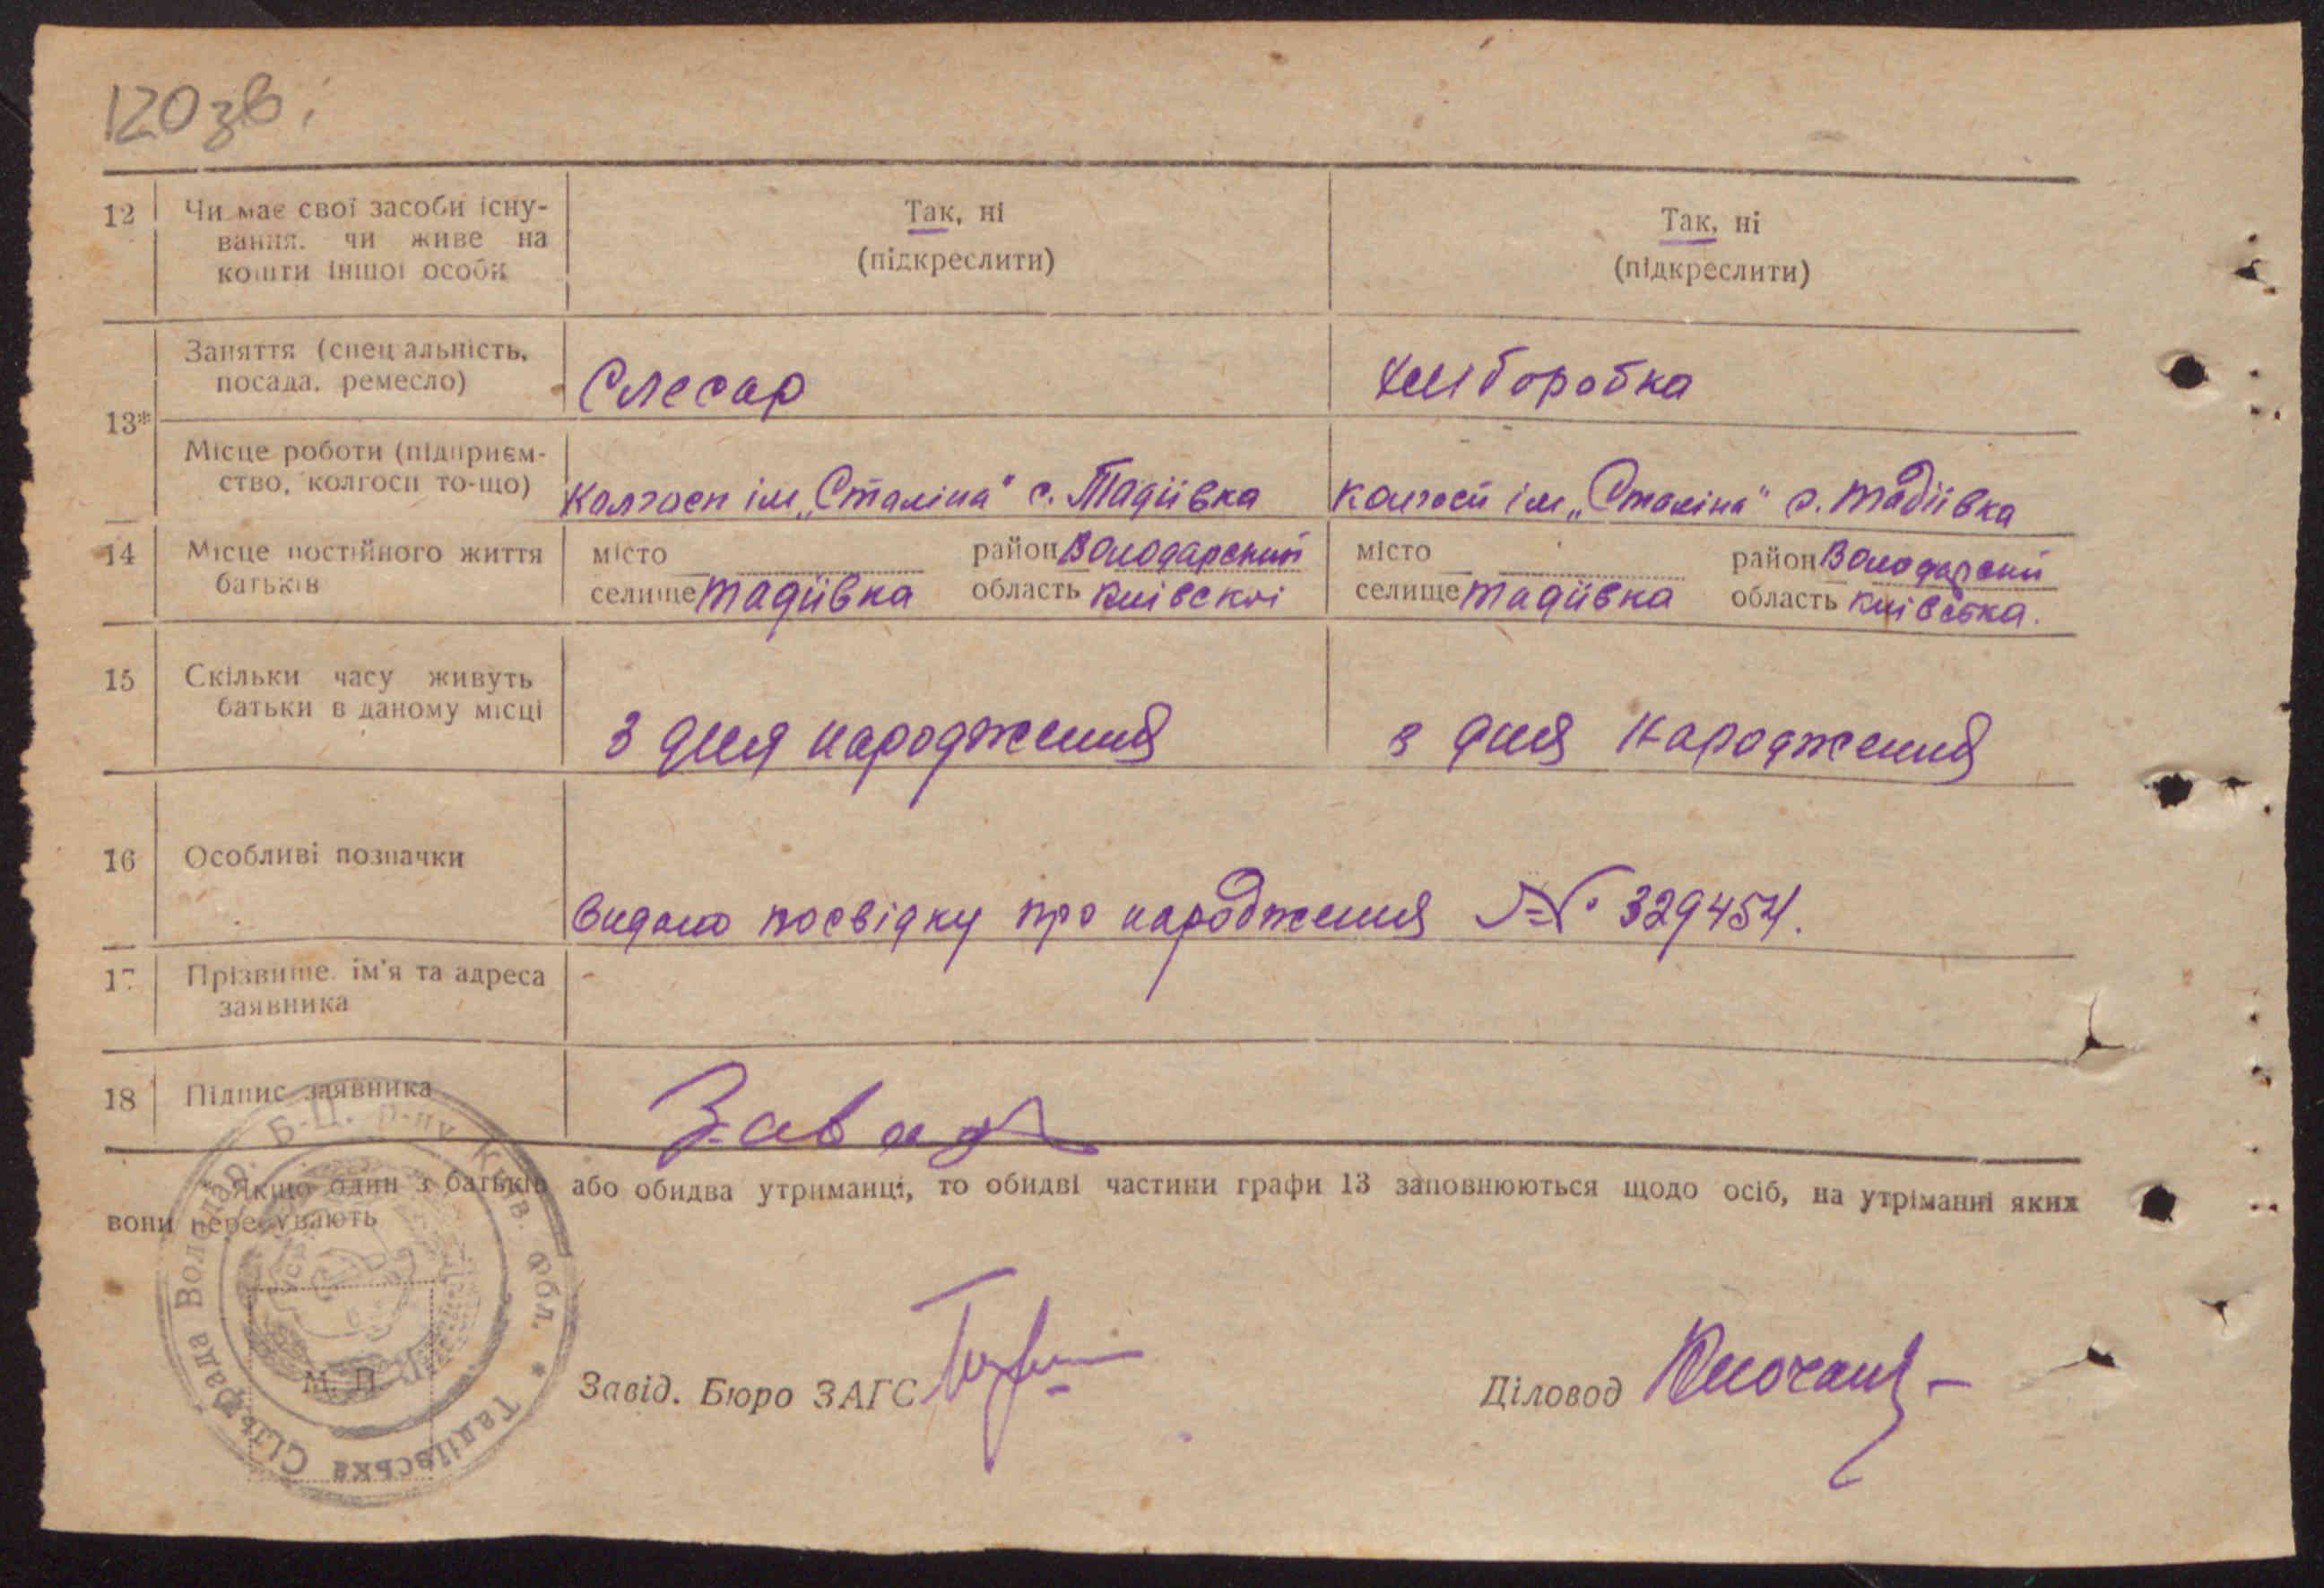 120 зв.
12 Чи має свої засоби існу- Так, ні Так, ні
вання. чи живе на (підкреслити) (підкреслити)
кошти іншої особи
Заняття (спеціальність, Слесар Хліборобка
посада, ремесло)
13*
Місце роботи (підприєм-
ство, колгосп то-що) Колгосп ім „Сталіна" с. Тадіївка Колгосп ім „Сталіна" с. Тадіївка
14 Місце постійного життя місто район Володарский місто район Володарский
батьків селище Тадіївка область Київскої селище Тадіївка область Київська.
15 Скільки часу живуть
батьки в даному місці З дня народження з дня народження
16 Особливі позначки
Видано посвідку про народження № 329454.
17 Прізвище, ім'я та адреса -
заявника
18 Підпис заявника
* Якщо один з батьків або обидва утриманці, то обидві частини графи 13 заповнюються щодо осіб, на утріманні яких
вони перебувають
Тадіївська Сільрада Володар. Б-Ц. р-ну Київ. обл. *
УСРР
М. П.
Завід. Бюро ЗАГС Діловод